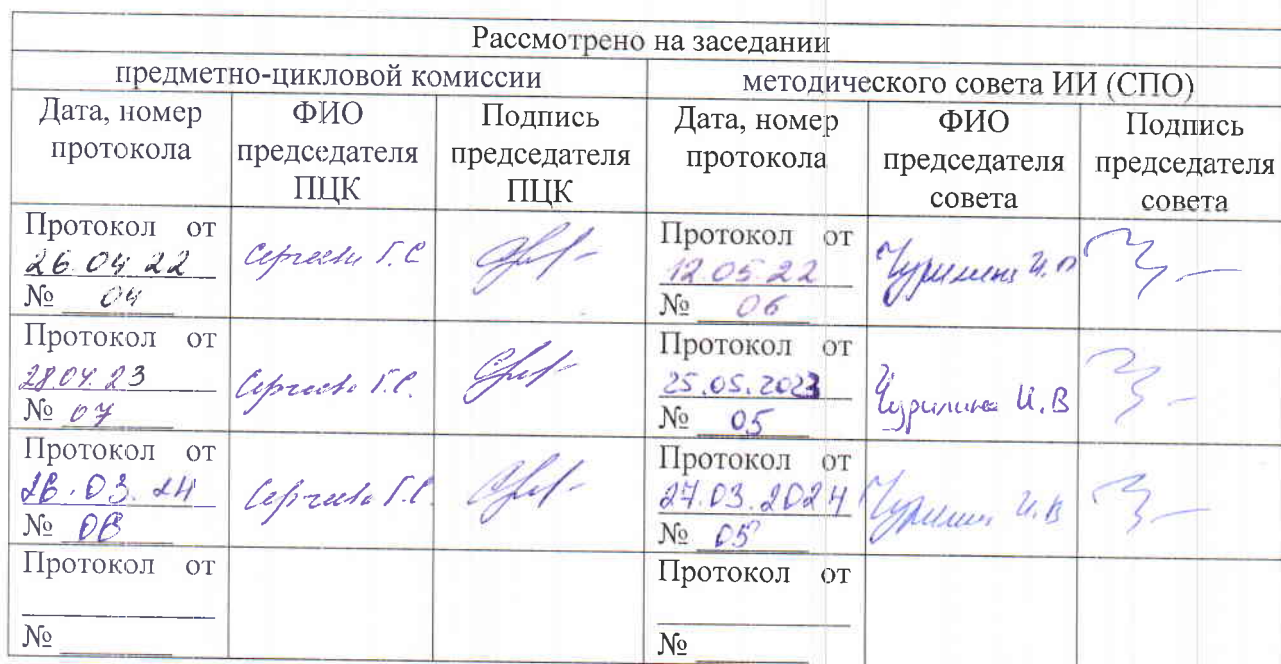 Рассмотрено на заседании
предметно-цикловой комиссии методического совета ИИ (СПО)
Дата, номер протокола ФИО председателя ПЦК Подпись председателя ПЦК Дата, номер протокола ФИО председателя совета Подпись председателя совета
Протокол от
26.04.22
№ 04
Сергеева Г.С
Протокол от
12.05.22
№ 06
Чурилина И.В
Протокол от
28.04.23
№ 07
Сергеева Г.С.
Протокол от
25.05.2023
№ 05
Чурилина И.В
Протокол от
26.03.24
№ 06
Сергеева Г.С.
Протокол от
27.03.2024
№ 05
Чурилина И.В
Протокол от
№
Протокол от
№